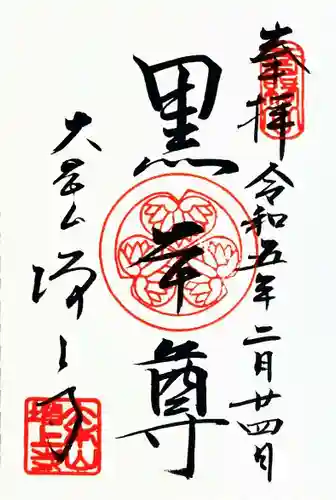 奉拝
令和五年二月廿四日
黒本尊
大本山
増上寺